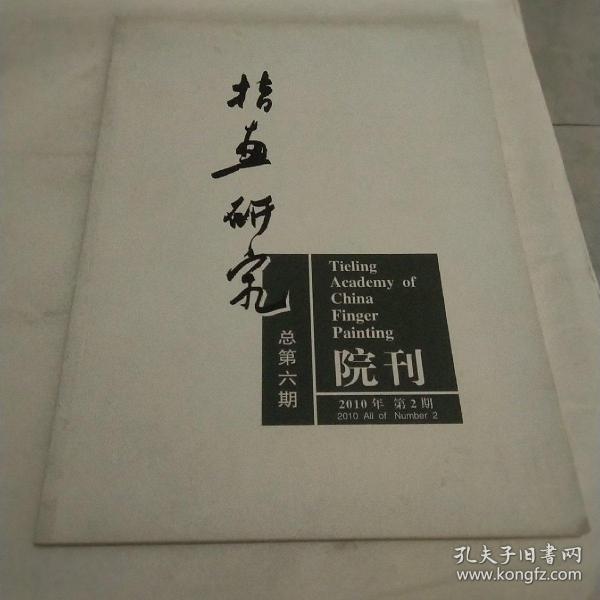 指画研究
总第六期
Tieling
Academy of
China
Finger
Painting
院刊
2010年 第2期
2010 All of Number 2
孔夫子旧书网
www.kongfz.com